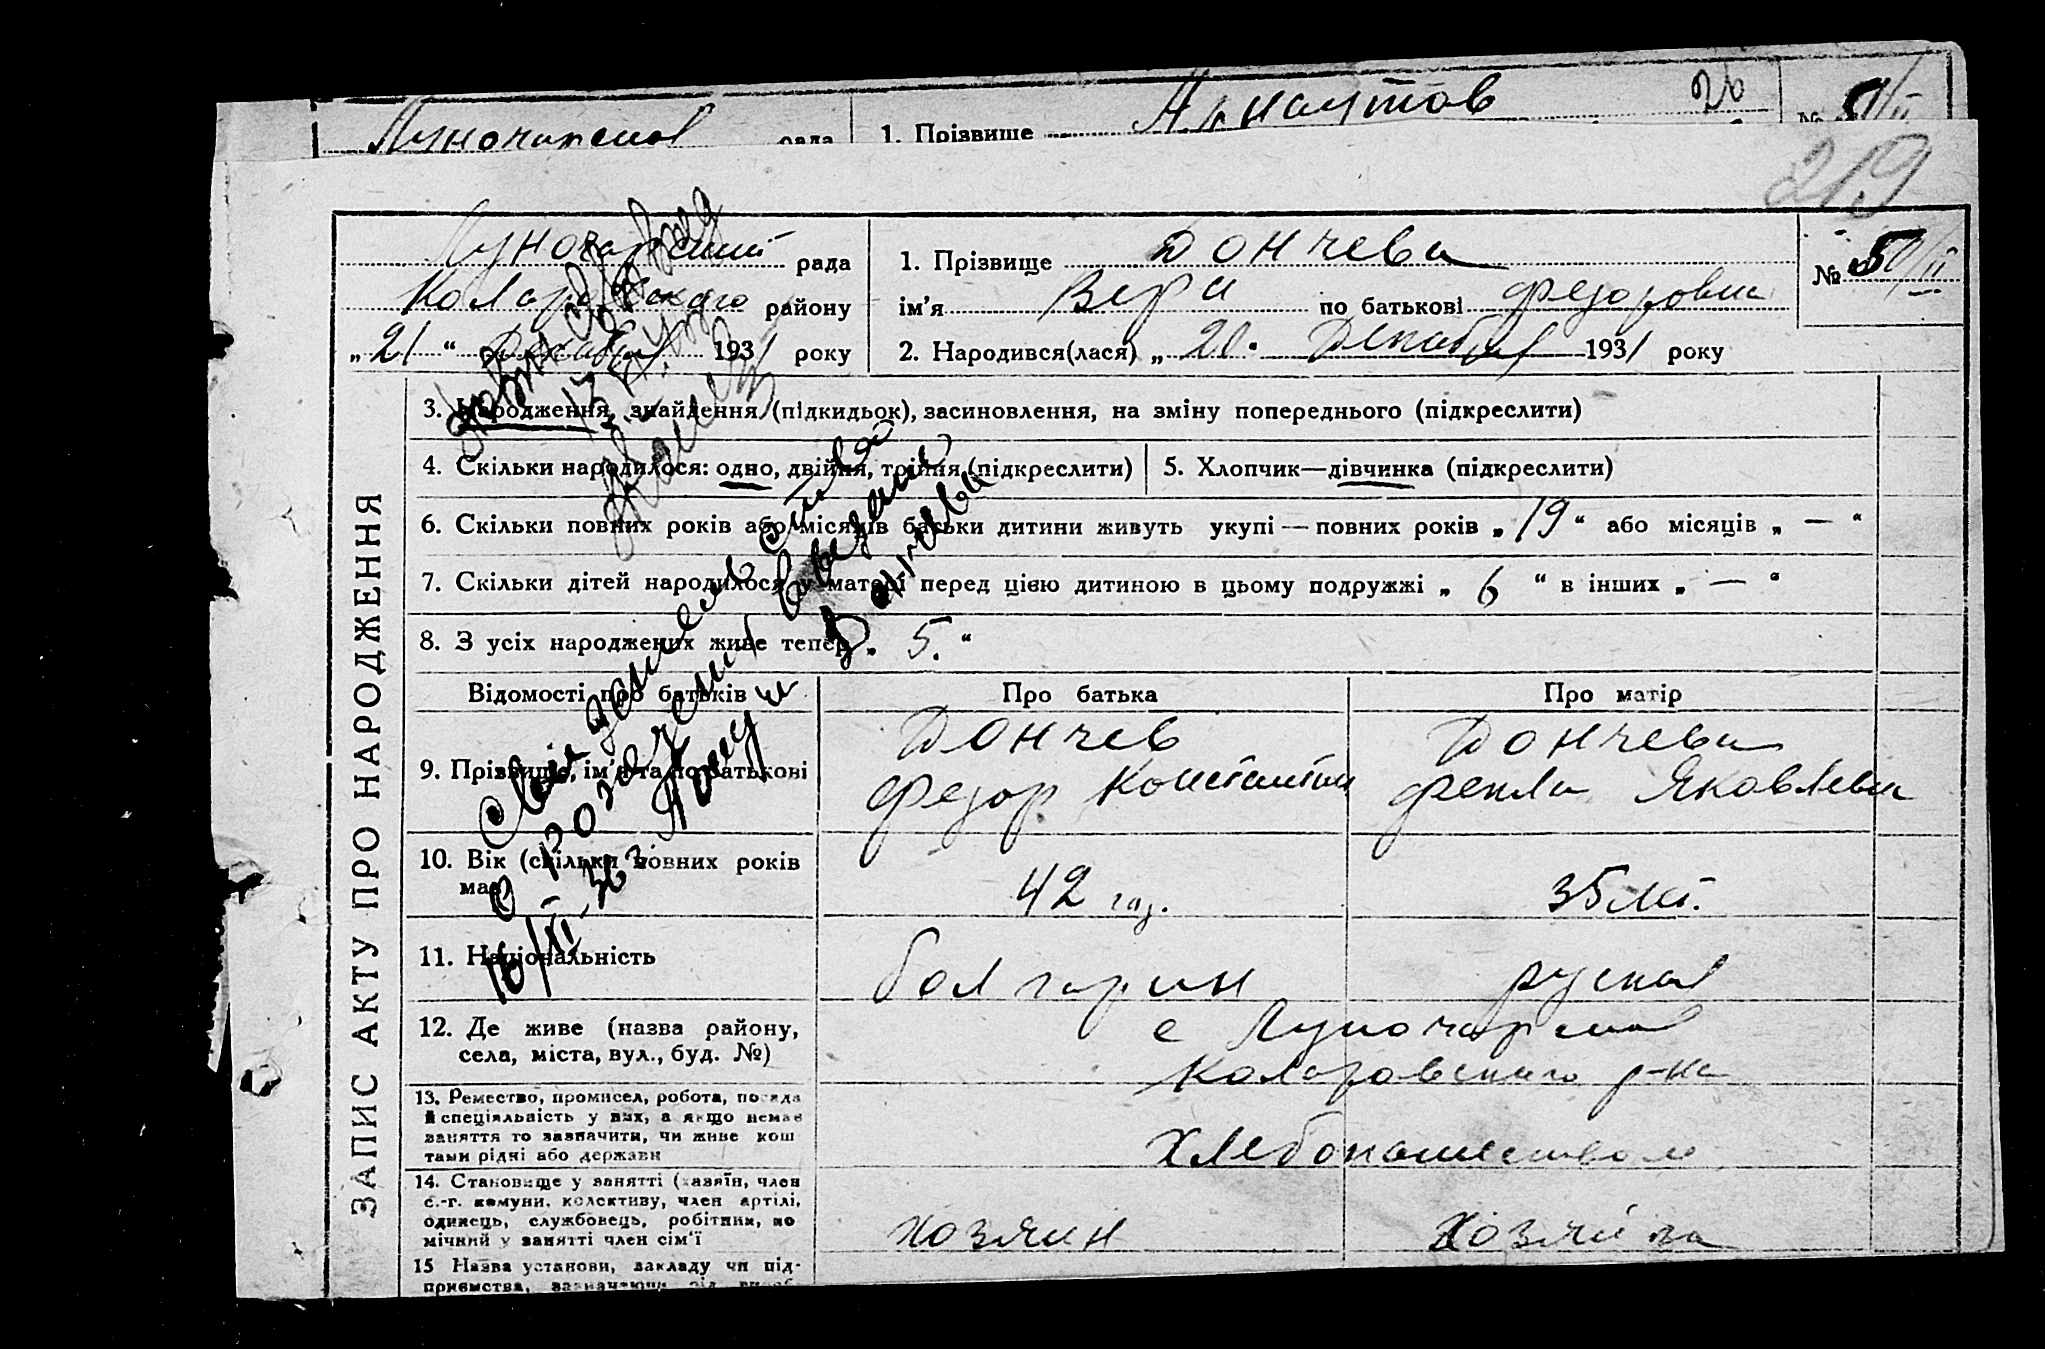 рада 1. Прізвище Арнаутов 26 №
219
Луночарский рада
Коларовского району
„21“ Декабря 1931 року
1. Прізвище Дончева
ім'я Вера по батькові Федоровна
2. Народився(лася) „20. Декабря 1931 року
№ 50/II
ЗАПИС АКТУ ПРО НАРОДЖЕННЯ
3. Народження, знайдення (підкидьок), засиновлення, на зміну попереднього (підкреслити)
4. Скільки народилося: одно, двійня, трійня (підкреслити) 5. Хлопчик—дівчинка (підкреслити)
6. Скільки повних років або місяців батьки дитини живуть укупі — повних років „19“ або місяців „—“
7. Скільки дітей народилося у матері перед цією дитиною в цьому подружжі „6“ в інших „—“
8. З усіх народжених живе тепер „5.“
Відомості про батьків Про батька Про матір
9. Прізвище, ім'я та по батькові
Дончев
Федор Константин
Дончева
Фекла Яковлевна
10. Вік (скільки повних років
має)
42 год. 35 лет.
11. Національність болгарин руская
12. Де живе (назва району,
села, міста, вул., буд. №)
с Луночарска
Коларовского р-на
13. Ремество, промисел, робота, посада
й спеціяльність у них, а якщо немає
заняття то зазначити, чи живе кош
тами рідні або держави
Хлебопашеством
14. Становище у занятті (хазяїн, член
с.-г. комуни, колективу, член артілі,
одинець, службовець, робітник, по
мічний у занятті член сім'ї
хозяин Хозяйка
15 Назва установи, закладу чи під-
приємства,
Свидетельство
о рождении
16/XI-36 г.